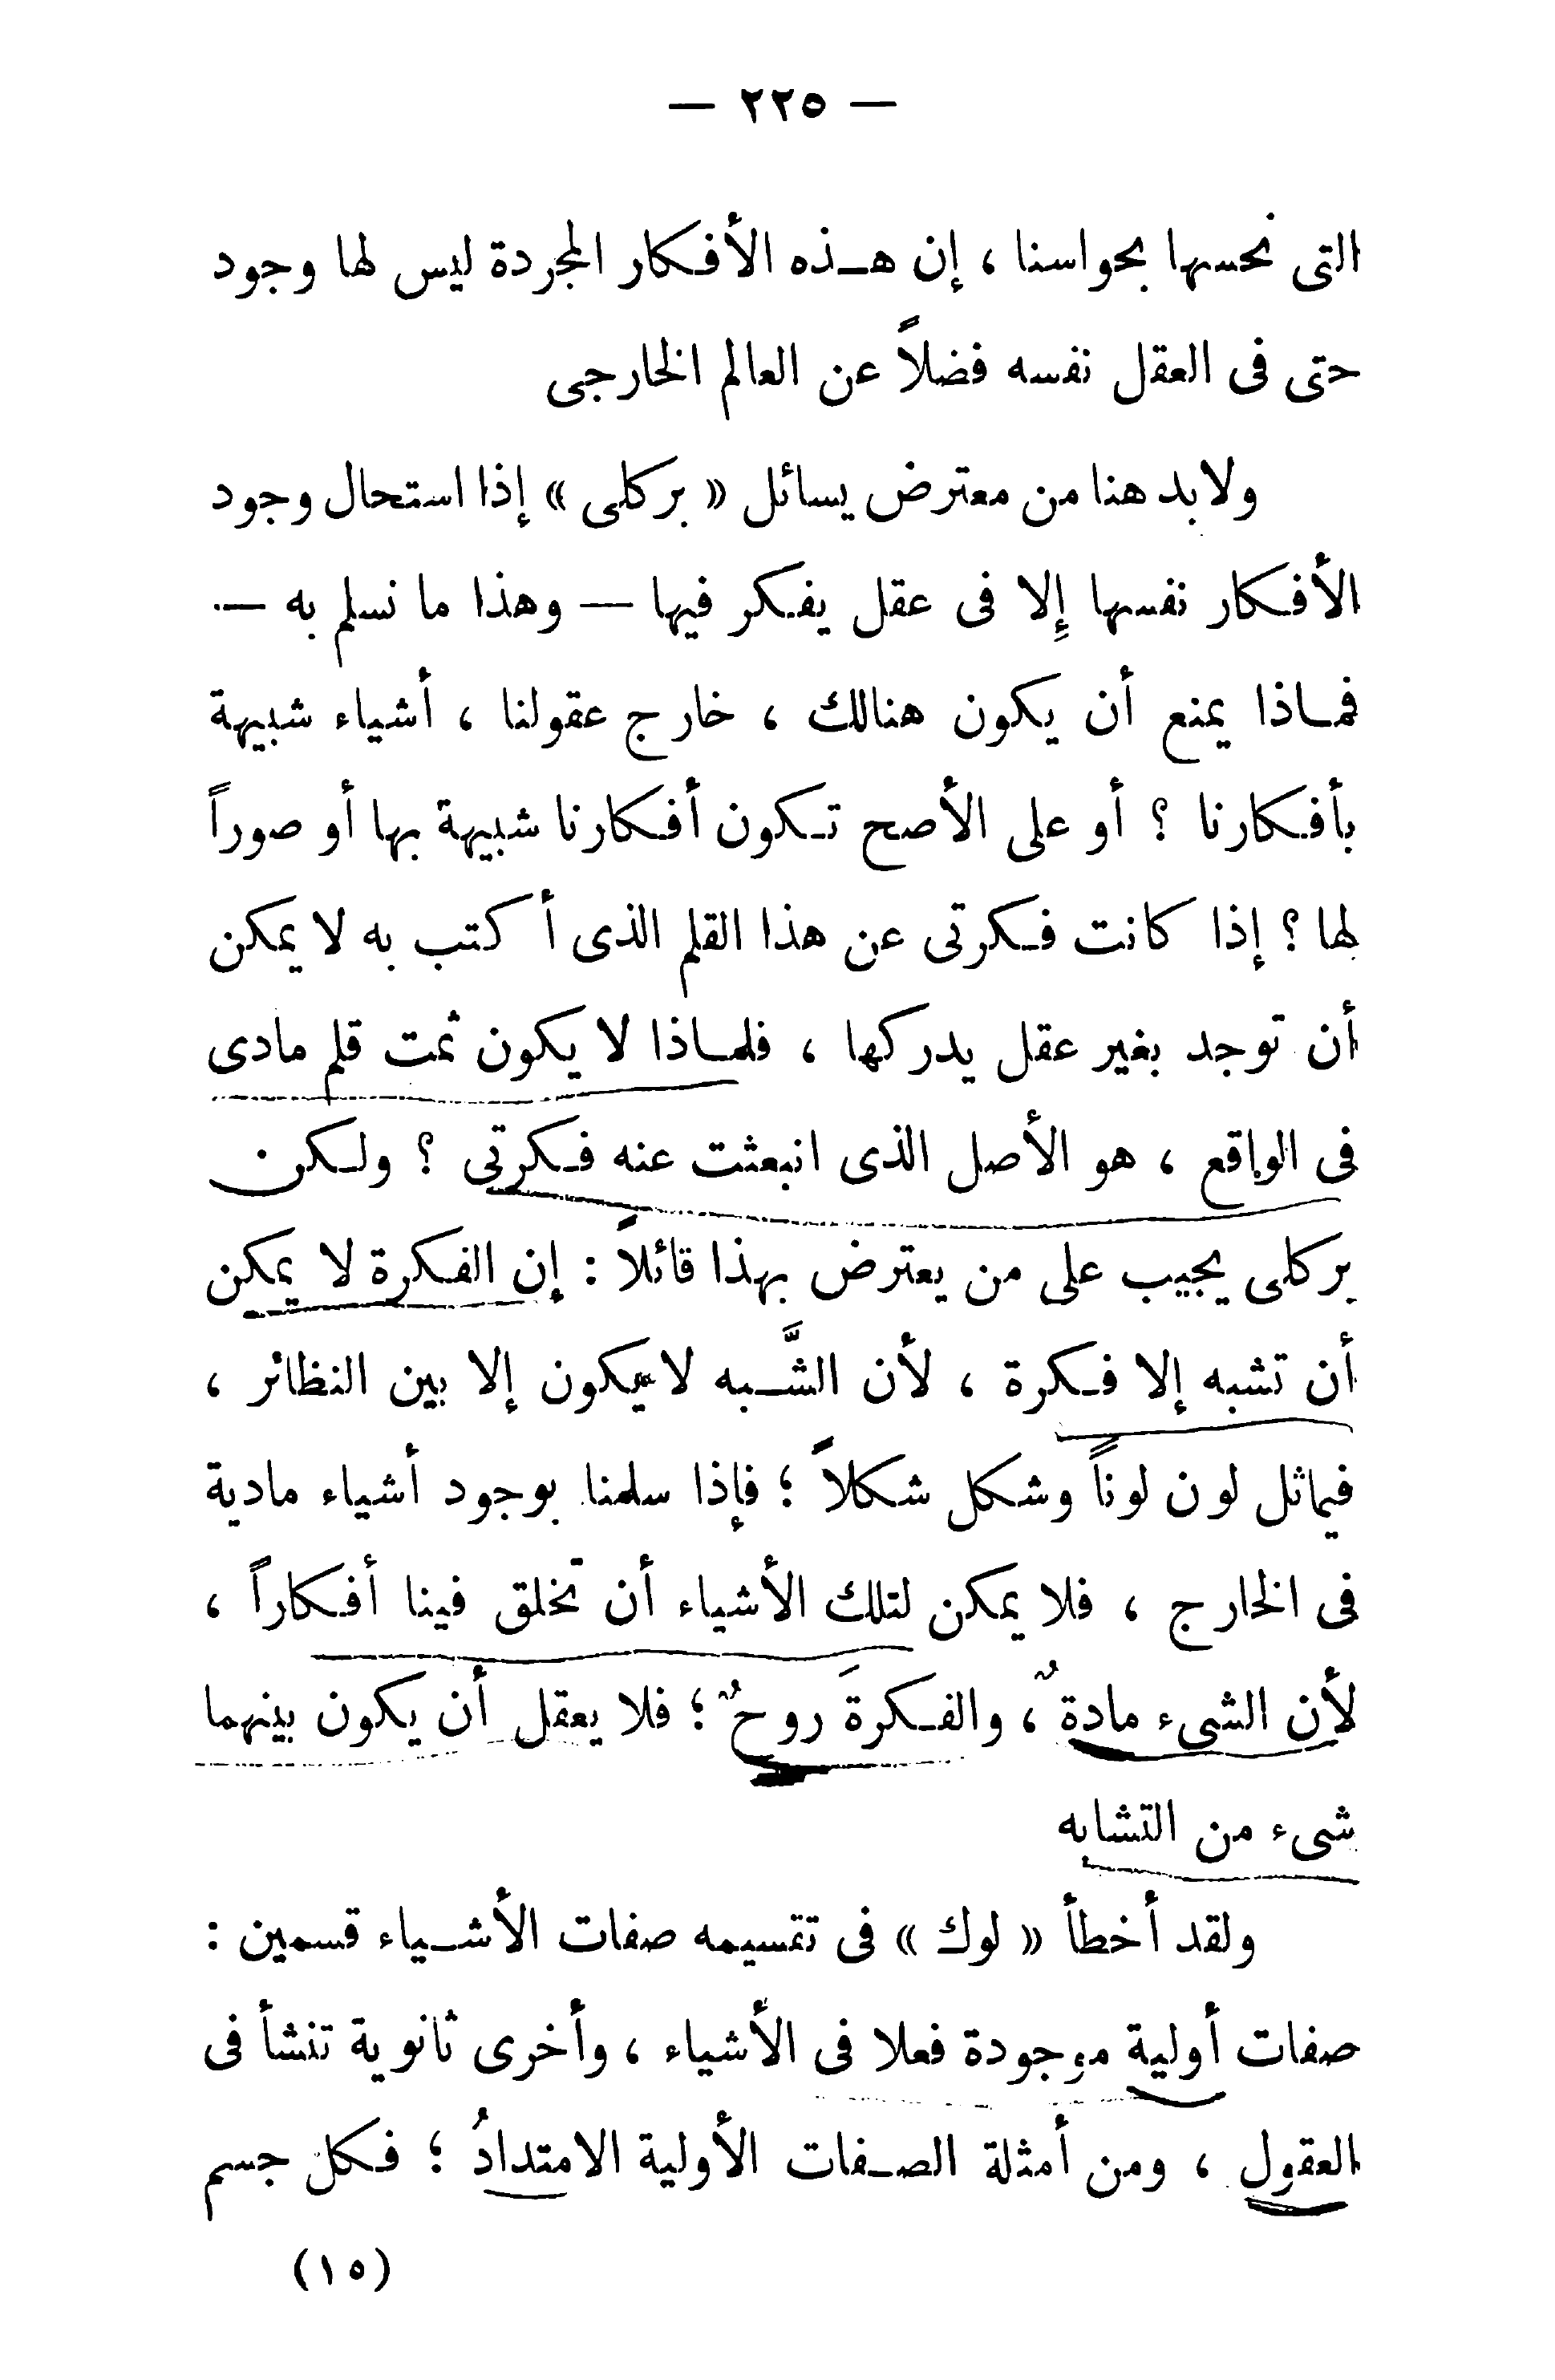 — ٢٢٥ —
التى نحسها بحواسنا ، إن هـذه الأفكار المجردة ليس لها وجود
حتى فى العقل نفسه فضلاً عن العالم الخارجى
ولابد هنا من معترض يسائل « بركلى » إذا استحال وجود
الأفكار نفسها إِلا فى عقل يفكر فيها — وهذا ما نسلم به —
فمـاذا يمنع أن يكون هنالك ، خارج عقولنا ، أشياء شبيهة
بأفكارنا ؟ أو على الأصح تـكون أفكارنا شبيهة بها أو صوراً
لها ؟ إذا كانت فـكرتى عن هذا القلم الذى أكتب به لا يمكن
أن توجد بغير عقل يدركها ، فلمـاذا لا يكون ثمت قلم مادى
فى الواقع ، هو الأصل الذى انبعثت عنه فـكرتى ؟ ولـكن
بركلى يجيب على من يعترض بهذا قائلاً : إن الفـكرة لا يمكن
أن تشبه إلا فـكرة ، لأن الشَّـبه لا يكون إلا بين النظائر ،
فيماثل لون لوناً وشكل شكلاً ؛ فإذا سلمنا بوجود أشياء مادية
فى الخارج ، فلا يمكن لتلك الأشياء أن تخلق فينا أفكاراً ،
لأن الشىء مادةٌ ، والفـكرةَ روحٌ ؛ فلا يعقل أن يكون بينهما
شىء من التشابه
ولقد أخطأ « لوك » فى تقسيمه صفات الأشـياء قسمين :
صفات أولية موجودة فعلا فى الأشياء ، وأخرى ثانوية تنشأ فى
العقول ، ومن أمثلة الصـفات الأولية الامتدادُ ؛ فـكل جسم
(١٥)